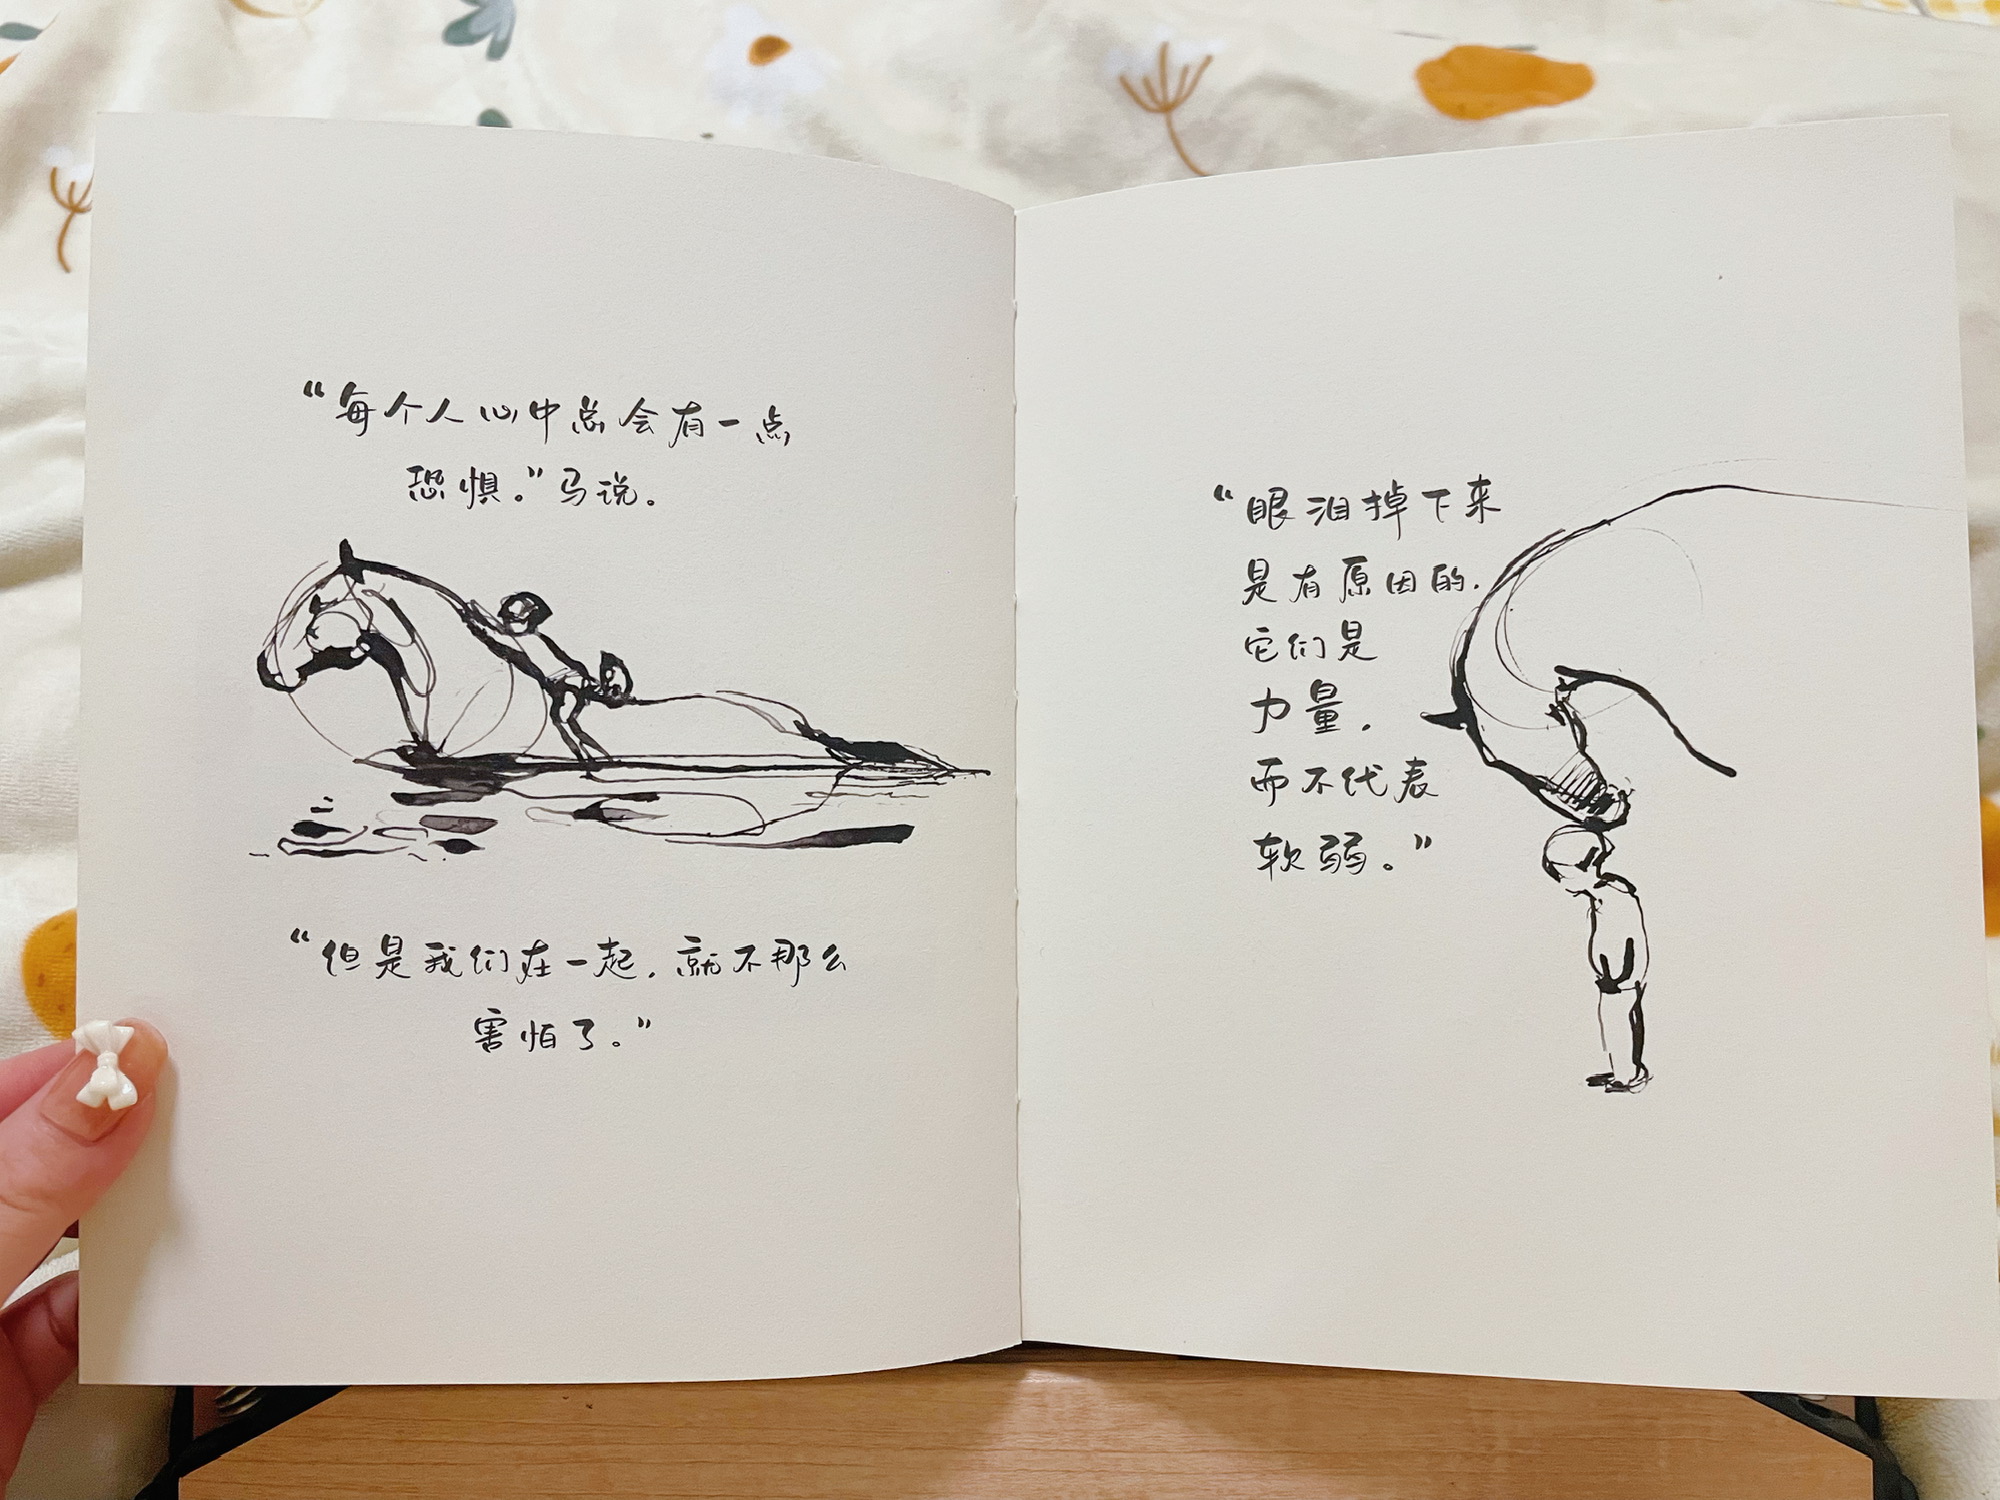 “每个人心中总会有一点
恐惧。”马说。
“但是我们在一起，就不那么
害怕了。”
“眼泪掉下来
是有原因的，
它们是
力量，
而不代表
软弱。”